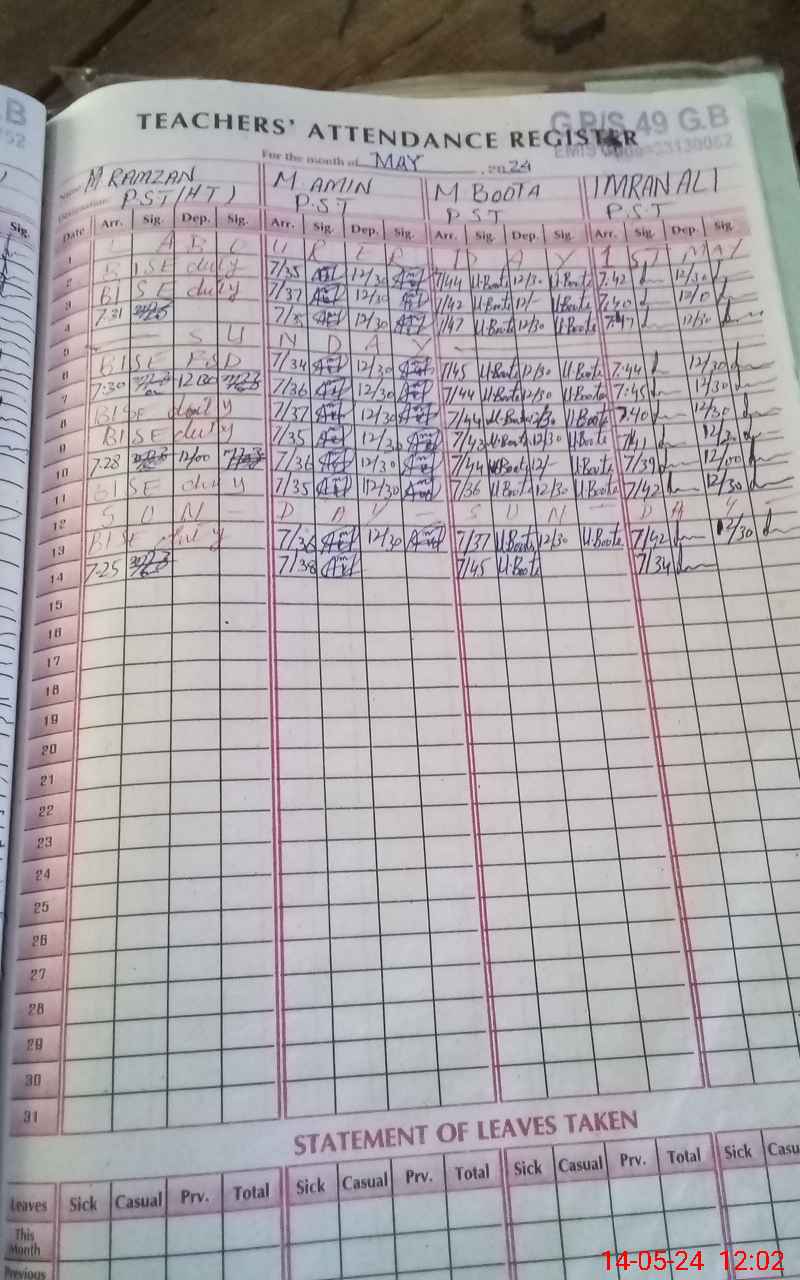 G.P/S 49 G.B
TEACHERS' ATTENDANCE REGISTER
For the month of MAY 2024
Name M RAMZAN M AMIN M BOOTA IMRAN ALI
Designation PST (HT) P.S.T P.S.T P.S.T
Date Arr. Sig. Dep. Sig. Arr. Sig. Dep. Sig. Arr. Sig. Dep. Sig. Arr. Sig. Dep. Sig.
1 L A B O U R D A Y 1 ST MAY
2 BISE duty 7/35 12/30 7/44 U.Boota 12/30 U.Boota 7.42 12/30
3 BISE duty 7/37 12/30 7/42 U.Boota 12/- U.Boota 7.40
4 7.31 12/30 7/47 U.Boota 12/30 U.Boota 7.47 12/30
5 S U N D A Y
6 BISE 7/34 12/30 7/45 U.Boota 12/30 U.Boota 7.44 12/30
7 7.30 12.30 7/36 12/30 7/44 U.Boota 12/30 U.Boota 7.45 12/30
8 BISE duty 7/37 12/30 7/44 U.Boota 12/30 U.Boota 7.40 12/30
9 BISE duty 7/35 12/30 7/43 U.Boota 12/30 U.Boota 7/41
10 7.28 12/00 7/36 12/30 7/44 U.Boota 12/- U.Boota 7/39 12/00
11 BISE duty 7/35 12/30 7/36 U.Boota 12/30 U.Boota 7/42 12/30
12 S U N - D A Y S U N - D A Y
13 BISE duty 7/36 12/30 7/37 U.Boota 12/30 U.Boota 7/42 12/30
14 7.25 7/38 7/45 U.Boota 7/34
15
16
17
18
19
20
21
22
23
24
25
26
27
28
29
30
31
STATEMENT OF LEAVES TAKEN
Leaves Sick Casual Prv. Total Sick Casual Prv. Total Sick Casual Prv. Total Sick Casu
This
Month
Previous
14-05-24 12:02